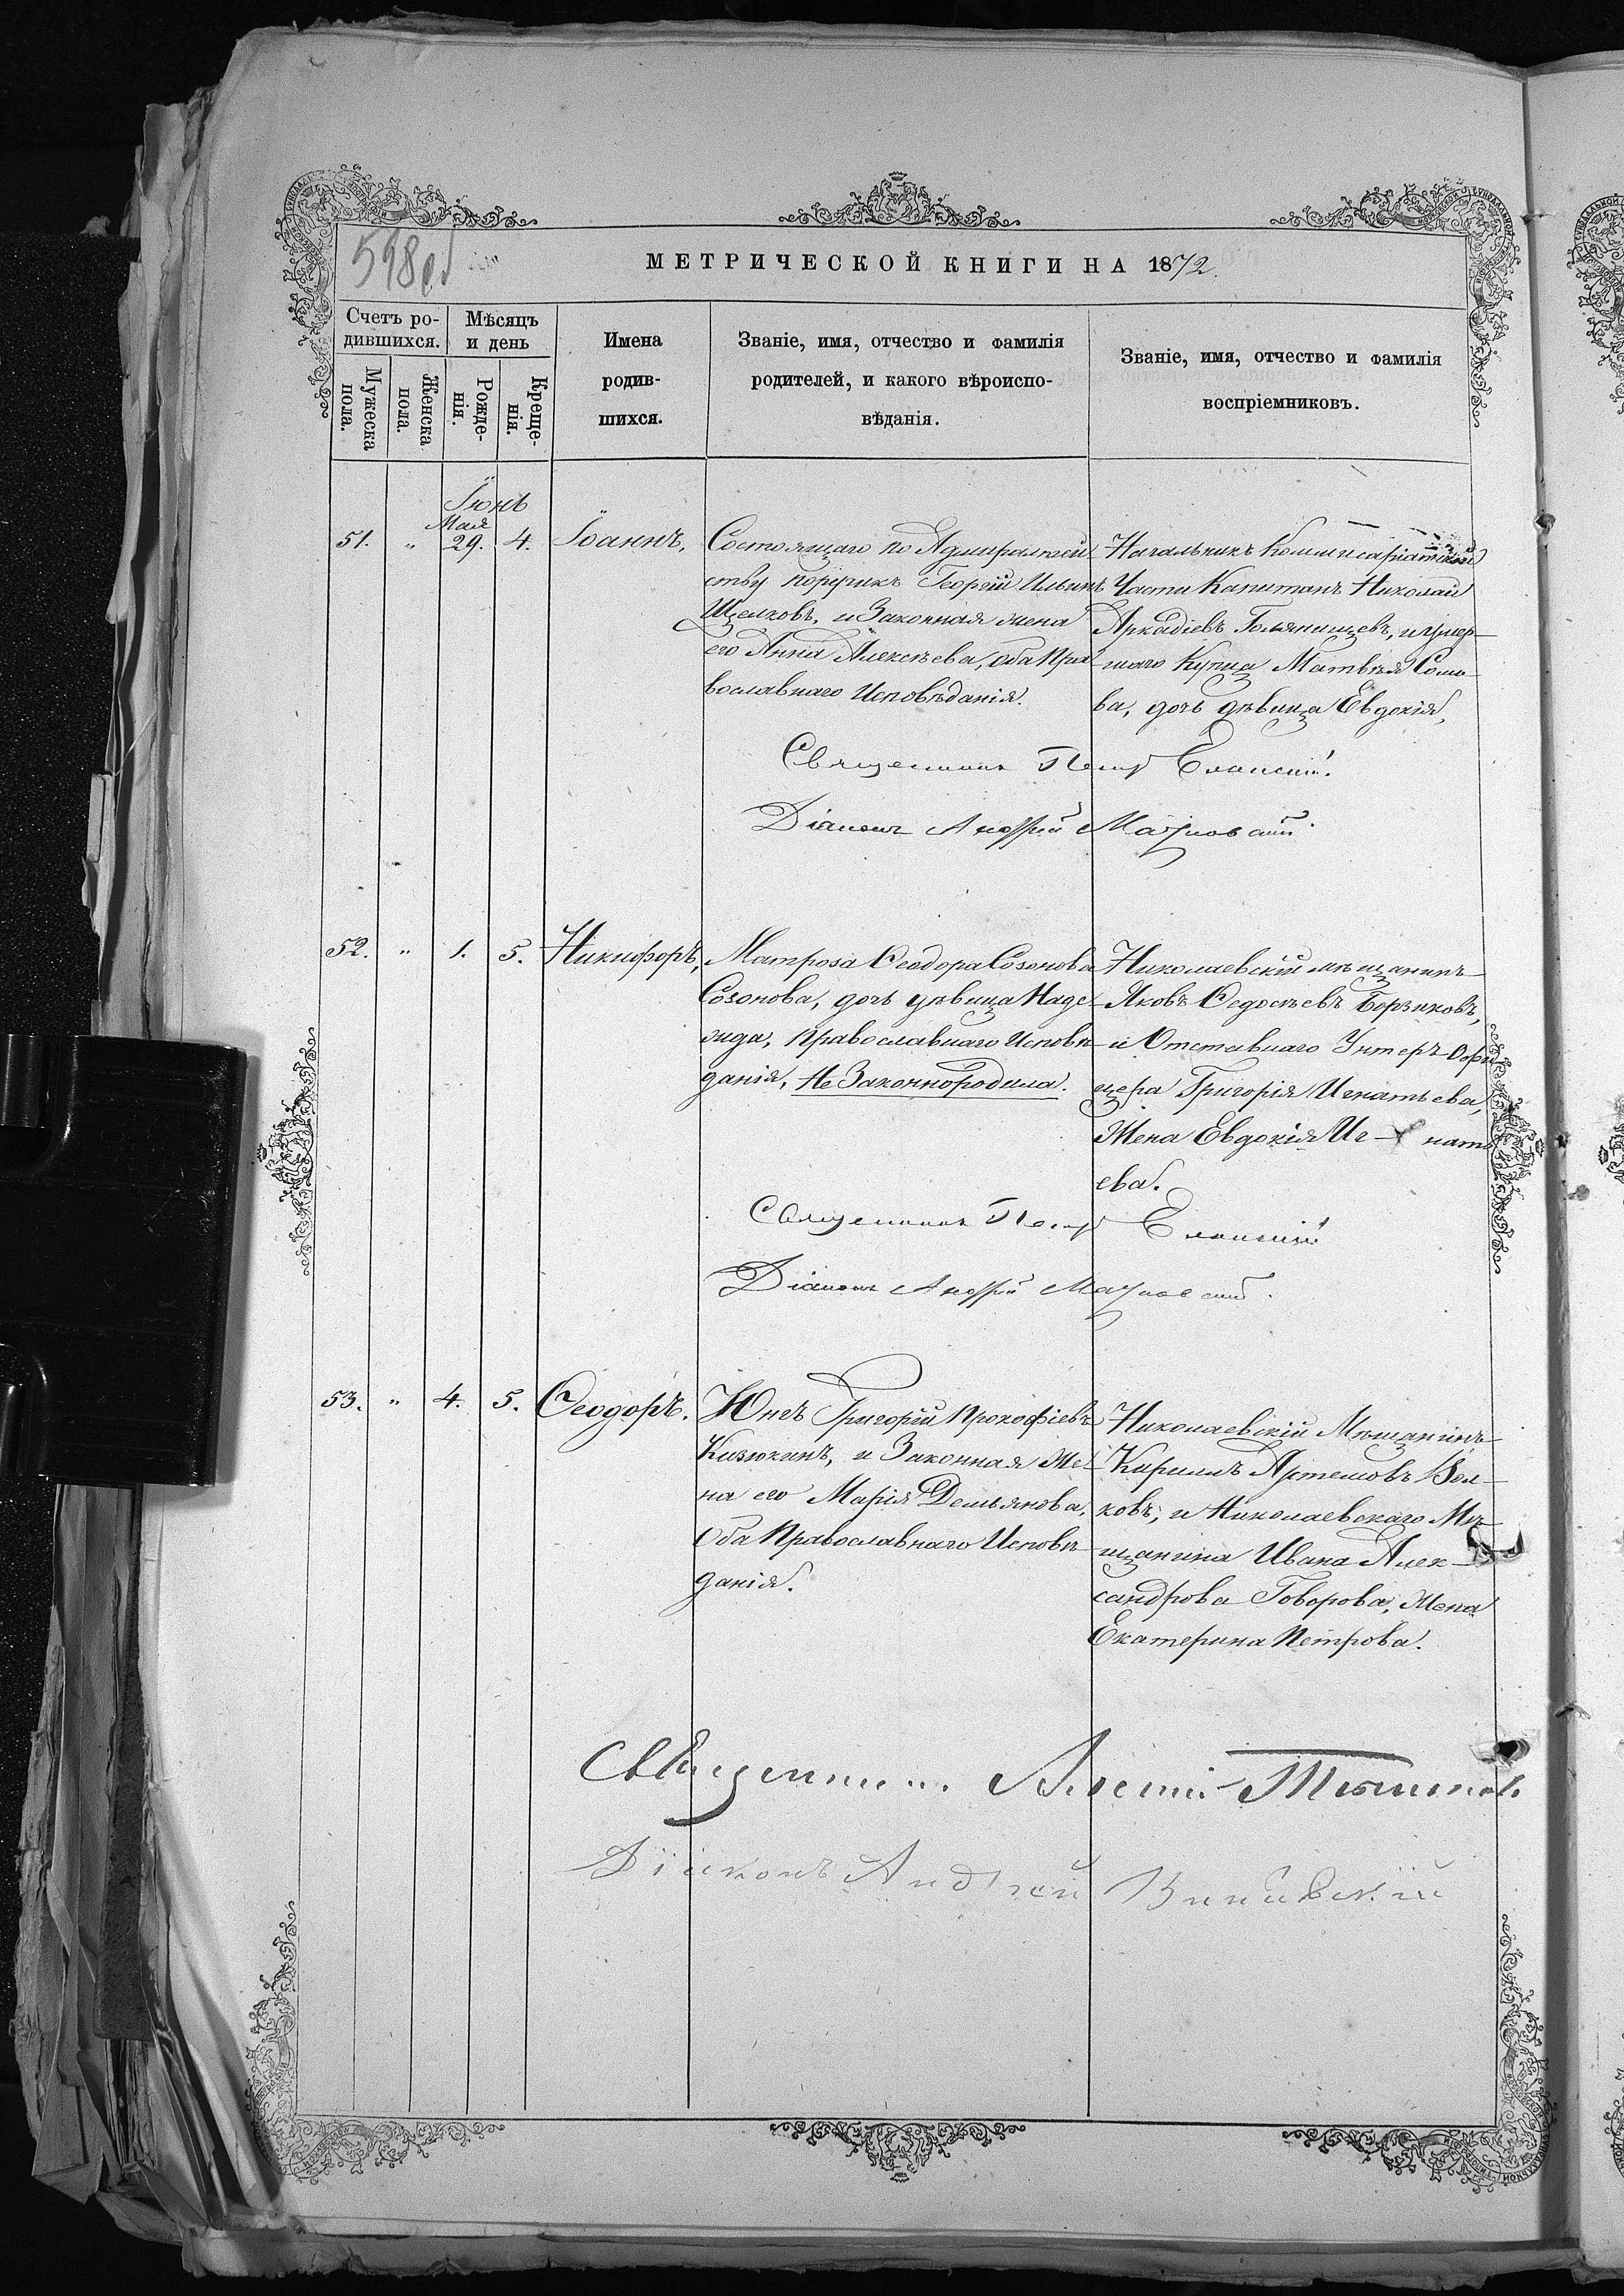 598 об
МЕТРИЧЕСКОЙ КНИГИ НА 1872.
Счетъ ро-
дившихся.
Мѣсяцъ
и день
Мужеска
пола.
Женска
пола.
Рожде-
нія.
Креще-
нія.
Имена
родив-
шихся.
Званіе, имя, отчество и фамилія
родителей, и какого вѣроиспо-
вѣданія.
Званіе, имя, отчество и фамилія
воспріемниковъ.
Іюнь
Мая
51. " 29. 4. Іоаннъ.
Состоящаго по Адмиралтей
ству поручикъ Георгій Ильинъ
Щелковъ, и Законная жена
его Анна Алексѣева, оба Пра
вославнаго Исповѣданія.
Начальникъ Коммисаріатской
Части Капитанъ Николай
Аркадіевъ Голянищевъ, и умер-
шаго Купца Матвѣя Соло-
ва, дочь дѣвица Евдокія,
Священникъ Петръ Еланскій.
Діаконъ Андрей
52. " 1. 5. Никифоръ,
Матроса Ѳеодора Созонова
Созонова, дочь дѣвица Наде-
жда, Православнаго Исповѣ-
данія, Не Законнородила.
Николаевскій мѣщанинъ
Яковъ Ѳедосѣевъ Борзиковъ,
и Отставнаго Унтеръ Офи
цера Григорія Игнатьева,
Жена Евдокія Иг- нать
ева.
Священникъ Петръ Еланскій
Діаконъ Андрей
53. " 4. 5. Ѳеодоръ.
Юнгъ Григорій Прокофіевъ
Кизюкинъ, и Законная Же-
на его Марія Демьянова,
Оба Православнаго Исповѣ
данія.
Николаевскій Мѣщанинъ
Кирилъ Артемовъ Вол-
ковъ, и Николаевскаго Мѣ-
щанина Ивана Алек-
сандрова Говорова, Жена
Екатерина Петрова.
Священникъ Алексій
Діаконъ Андрей